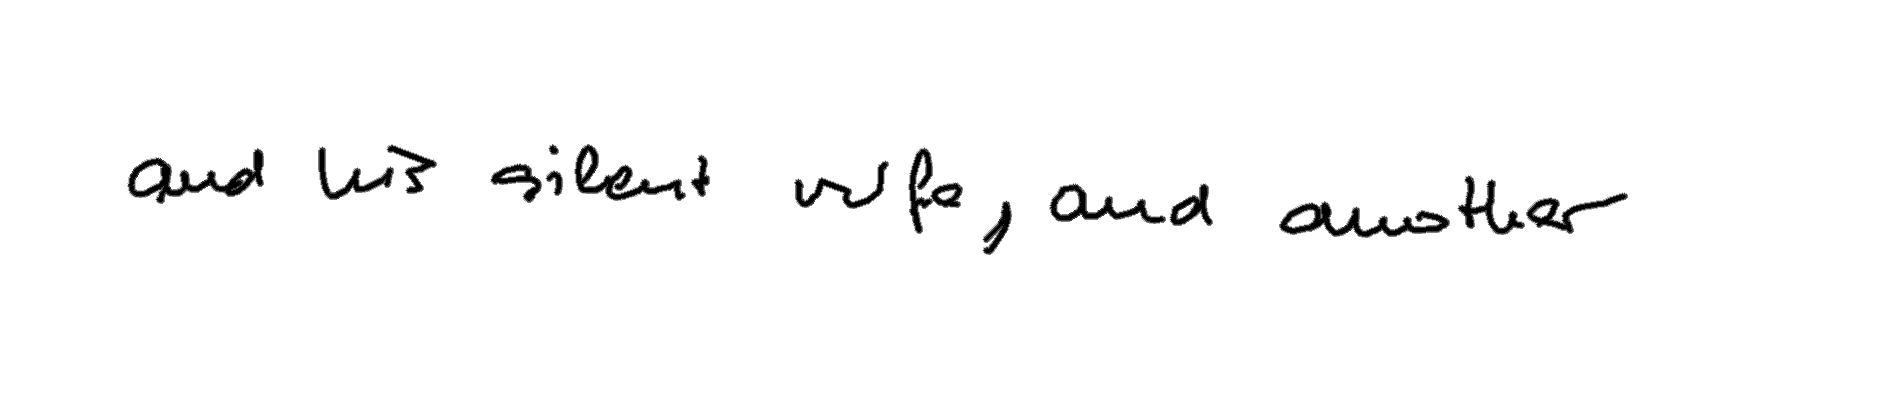 and his silent wife, and another